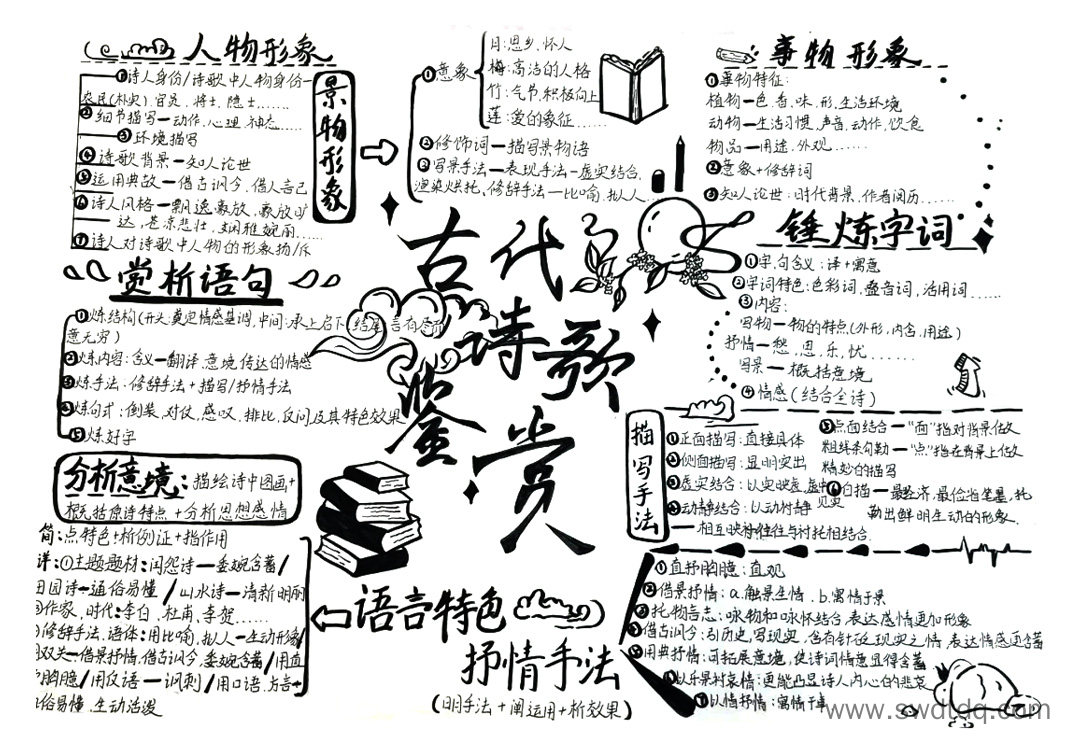 人物形象
①诗人身份/诗歌中人物身份—
农民(朴实).官员、将士、隐士……
②细节描写—动作、心理、神态……
③环境描写
④诗歌背景—知人论世
⑤运用典故—借古讽今、借人言己
⑥诗人风格—飘逸豪放、豪放旷
达、苍凉悲壮、娴雅婉丽……
⑦诗人对诗歌中人物的形象扬/斥
景物形象
①意象
月:思乡、怀人
梅:高洁的人格
竹:气节、积极向上
莲:爱的象征……
②修饰词—描写景物语
③写景手法—表现手法—虚实结合、
渲染烘托、修辞手法—比喻、拟人……
事物形象
①事物特征:
植物—色、香、味、形、生活环境
动物—生活习惯、声音、动作、饮食
物品—用途、外观……
②意象+修辞词
③知人论世:时代背景、作者阅历……
锤炼字词
①字、句含义:译+寓意
②字词特色:色彩词、叠音词、活用词……
③内容:
写物—物的特点(外形、内含、用途)
抒情—愁、思、乐、忧……
写景—概括意境
④情感(结合全诗)
古代
诗歌
鉴赏
赏析语句
①炼结构(开头:奠定情感基调、中间:承上启下、结尾:言有尽而
意无穷)
②炼内容:含义—翻译、意境、传达的情感
③炼手法:修辞手法+描写/抒情手法
④炼句式:倒装、对仗、感叹、排比、反问及其特色效果
⑤炼好字
分析意境:描绘诗中图画+
概括原诗特点+分析思想感情
描写手法
①正面描写:直接具体
②侧面描写:显明突出
③虚实结合:以实映虚、虚中见实
④动静结合:以动衬静
—相互映衬往往与衬托相结合.
⑤点面结合—“面”指对背景做
粗线条勾勒—“点”指在背景上做
精妙的描写
⑥白描—最经济、最俭省笔墨,托
勒出鲜明生动的形象.
简:点特色+析例证+指作用
详:①主题题材:闺怨诗—委婉含蓄/
田园诗—通俗易懂/山水诗—清新明丽
作家、时代:李白、杜甫、李贺……
修辞手法、语体:用比喻、拟人—生动形象/
双关—借景抒情、借古讽今、委婉含蓄/用直
胸臆/用反语—讽刺/用口语、方言—
俗易懂、生动活泼
语言特色
抒情手法
(明手法+阐运用+析效果)
①直抒胸臆:直观
②借景抒情:a.触景生情、b.寓情于景
③托物言志:咏物和咏怀结合 表达感情更加形象
④借古讽今:引历史,写现实,含有针砭现实之情,表达情感还含蓄
⑤用典抒情:可拓展意境,使诗词情意显得含蓄
⑥以乐景衬哀情:更能凸显诗人内心的悲哀
⑦以情抒情:寓情于
www.swdtdq.com